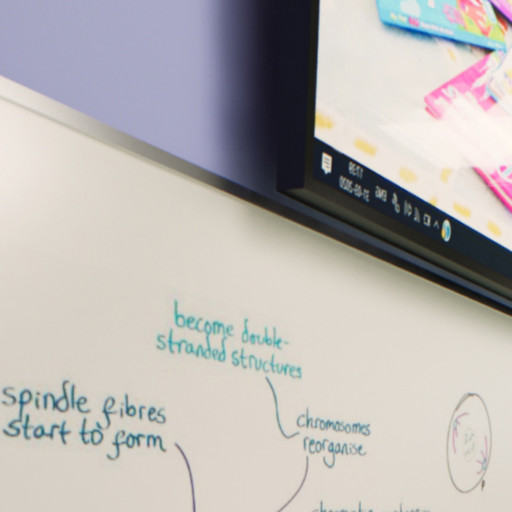 become double-
stranded structures
spindle fibres
start to form
chromosomes
reorganise